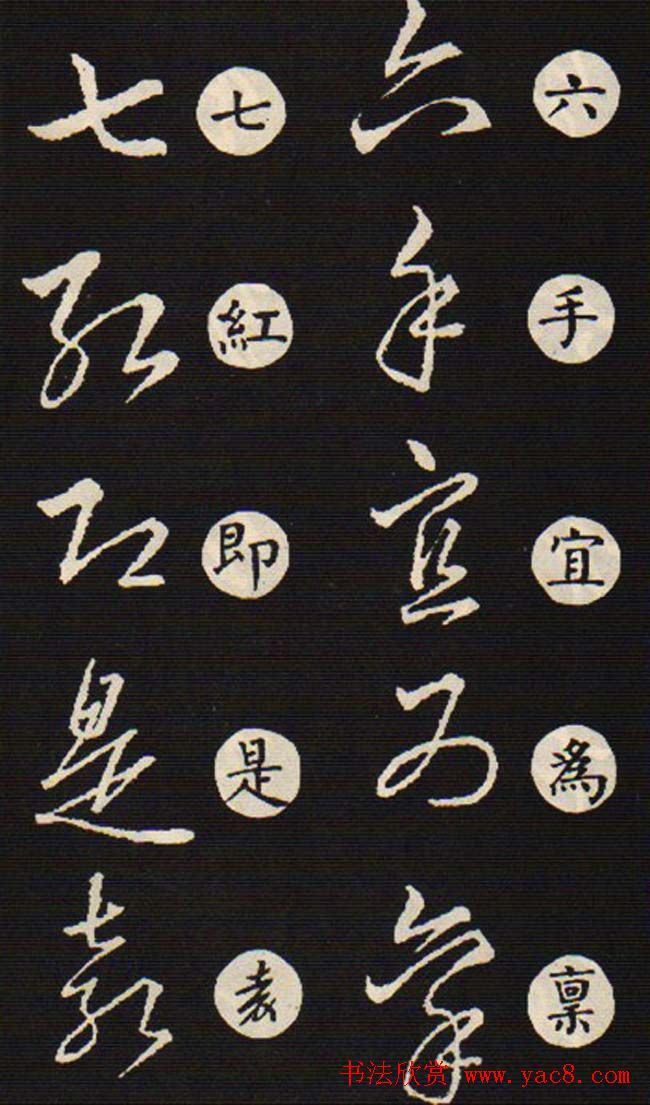 六手宜為禀
六手宜為禀
七紅即是袁
七紅即是袁
书法欣赏 www.yac8.com